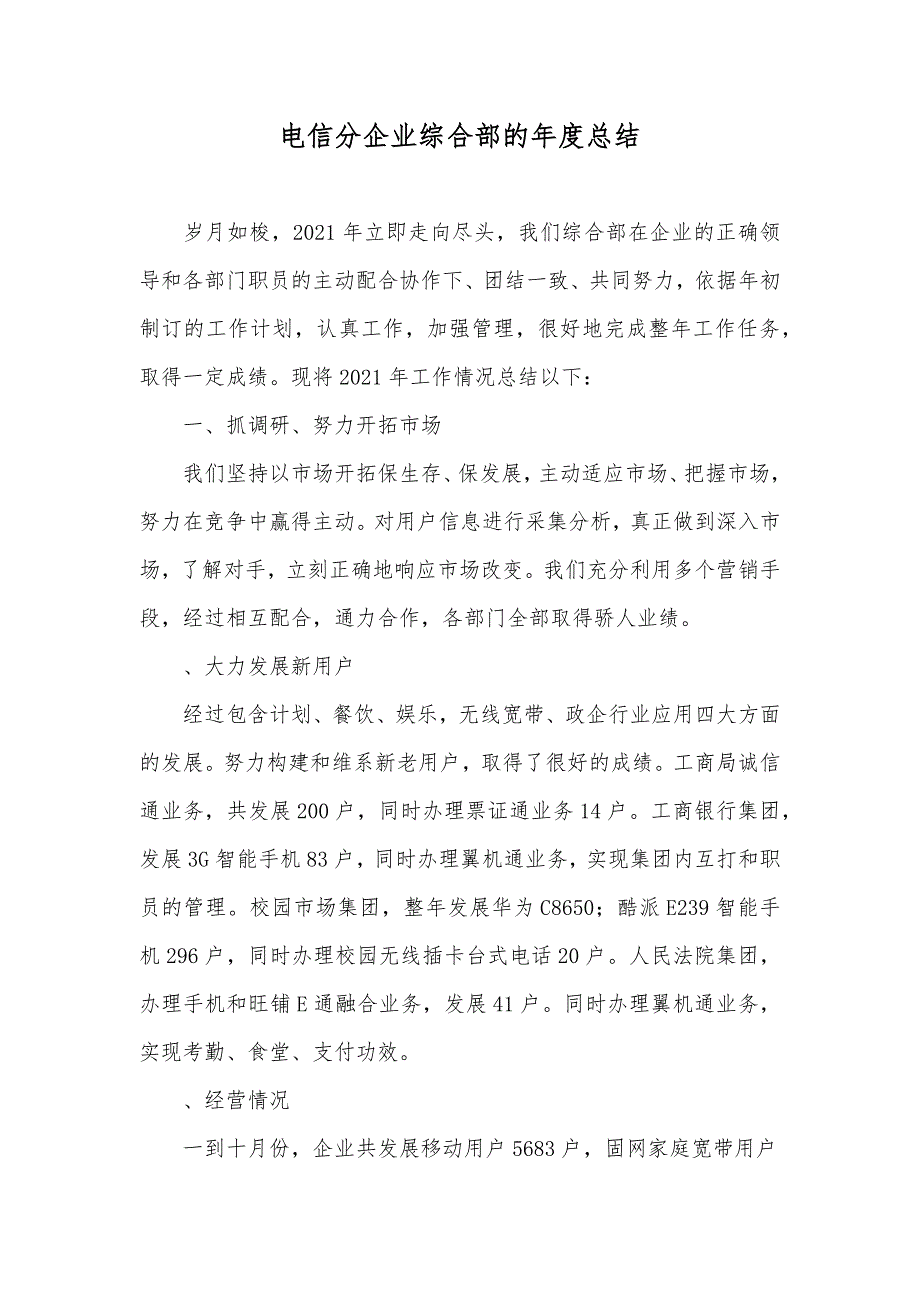 电信分企业综合部的年度总结
岁月如梭，2021 年立即走向尽头，我们综合部在企业的正确领
导和各部门职员的主动配合协作下、团结一致、共同努力，依据年初
制订的工作计划，认真工作，加强管理，很好地完成整年工作任务，
取得一定成绩。现将 2021 年工作情况总结以下：
一、抓调研、努力开拓市场
我们坚持以市场开拓保生存、保发展，主动适应市场、把握市场，
努力在竞争中赢得主动。对用户信息进行采集分析，真正做到深入市
场，了解对手，立刻正确地响应市场改变。我们充分利用多个营销手
段，经过相互配合，通力合作，各部门全部取得骄人业绩。
、大力发展新用户
经过包含计划、餐饮、娱乐，无线宽带、政企行业应用四大方面
的发展。努力构建和维系新老用户，取得了很好的成绩。工商局诚信
通业务，共发展 200 户，同时办理票证通业务 14 户。工商银行集团，
发展 3G 智能手机 83 户，同时办理翼机通业务，实现集团内互打和职
员的管理。校园市场集团，整年发展华为 C8650；酷派 E239 智能手
机 296 户，同时办理校园无线插卡台式电话 20 户。人民法院集团，
办理手机和旺铺 E 通融合业务，发展 41 户。同时办理翼机通业务，
实现考勤、食堂、支付功效。
、经营情况
一到十月份，企业共发展移动用户 5683 户，固网家庭宽带用户